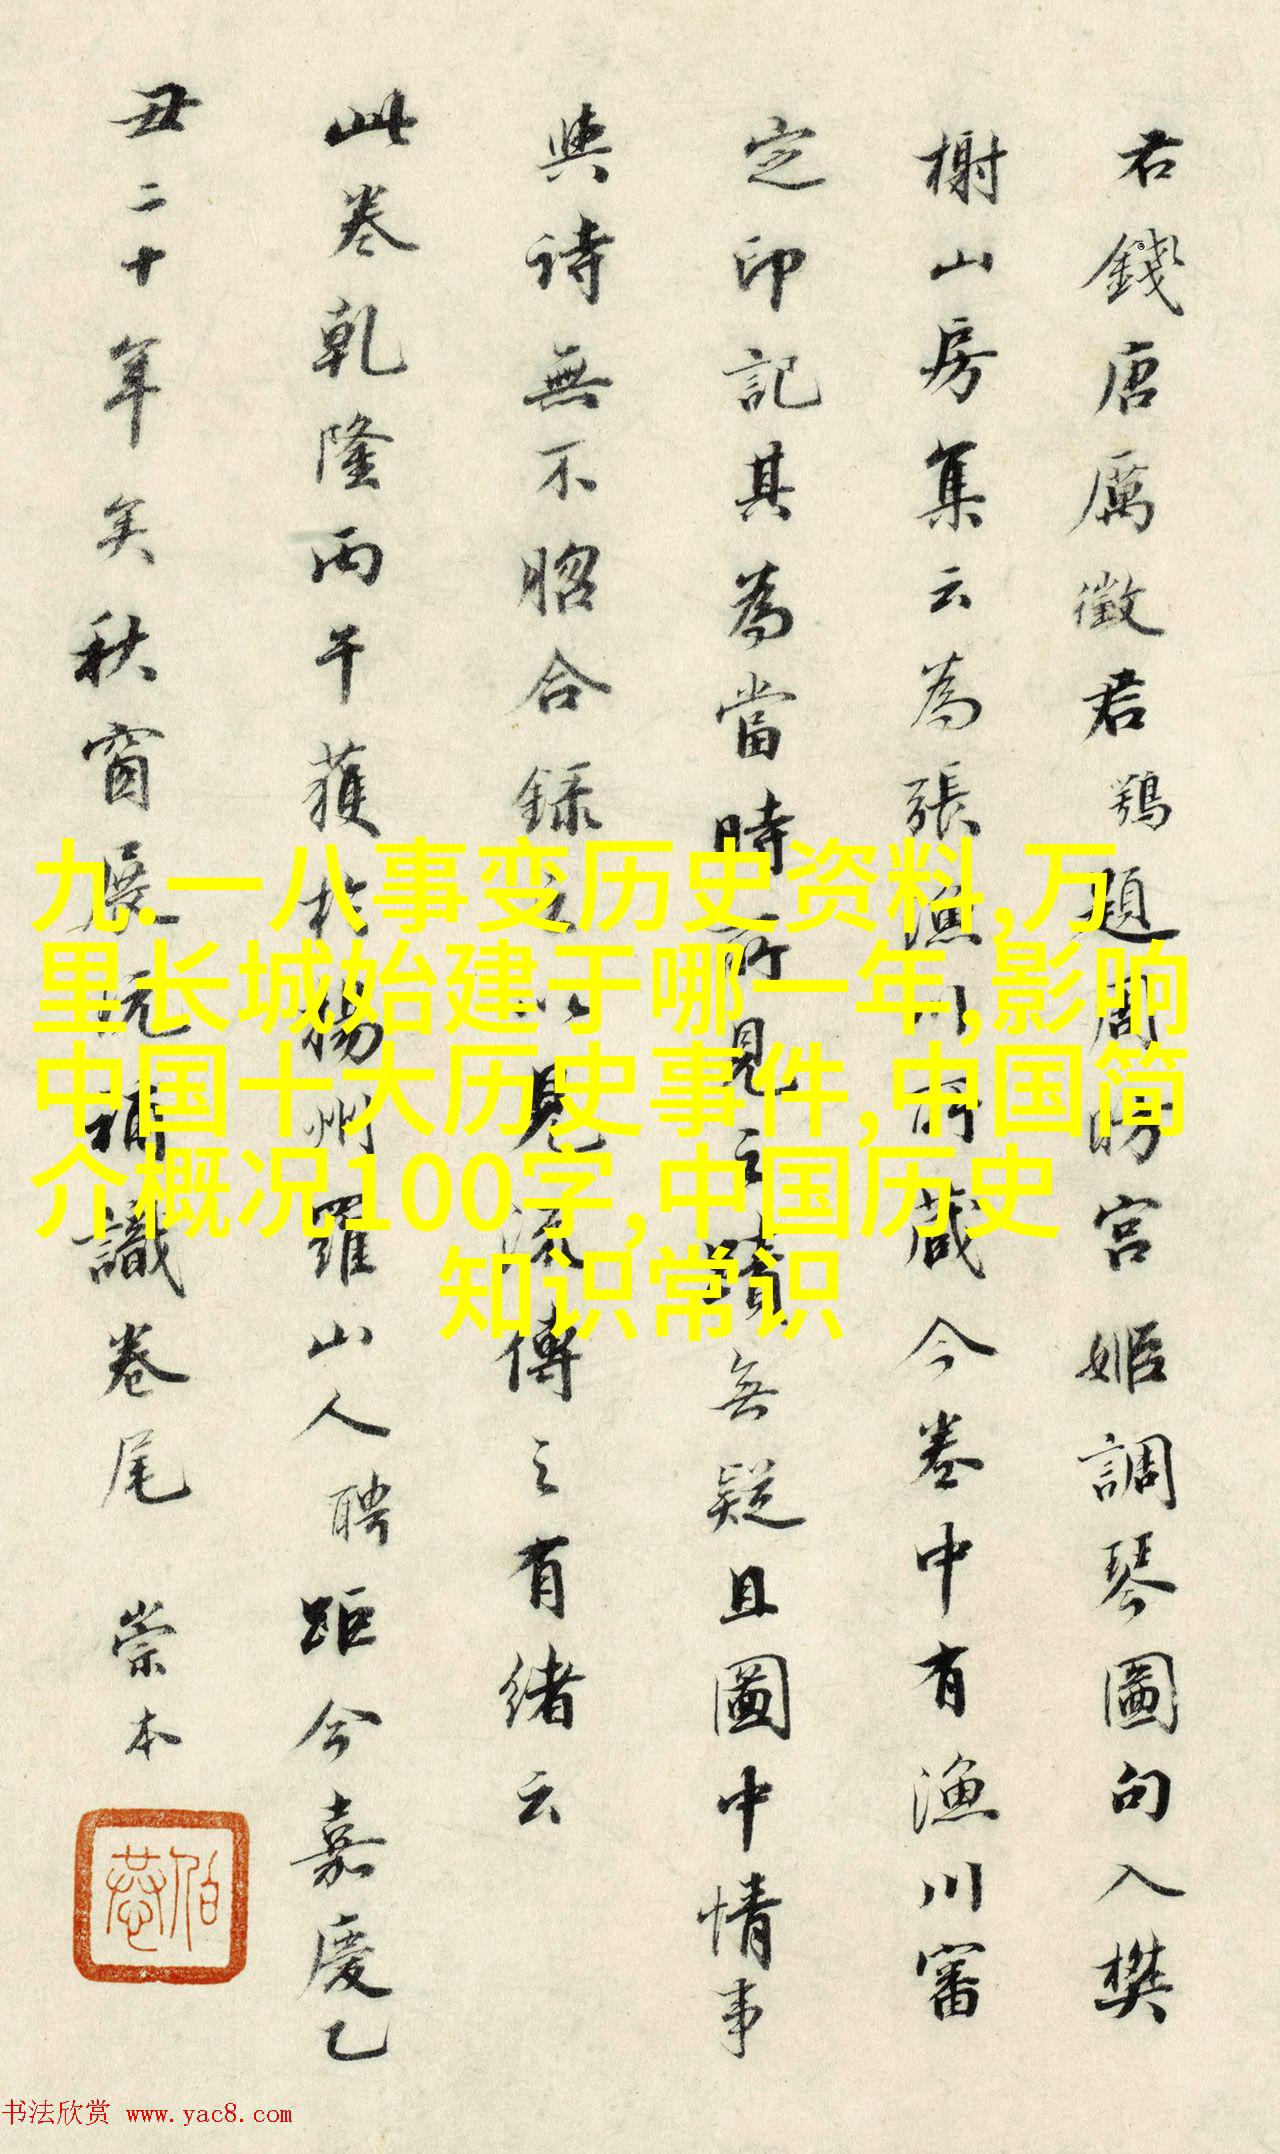 君錢唐厲徵君鶚題周昉宮姬調琴圖句入樊
榭山房集云為張漁川所藏今卷中有漁川審
定印記其為當時所見之蹟無疑且圖中情事
與詩無不脗合録之以見流傳之有緒云
此卷乾隆丙午獲於揚州羅山人聘距今嘉慶乙
丑二十年矣秋窗展玩補識卷尾 崇本
九.一八事变历史资料,万
里长城始建于哪一年,影响
中国十大历史事件,中国简
介概况100字,中国历史
知识常识
书法欣赏 www.yac8.com